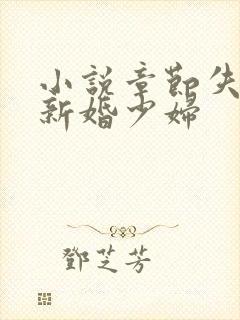 小說章節失
新婚少婦
鄧芝芳